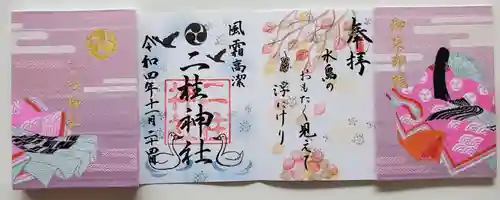 奉拝
水鳥の
おもたく見えて
浮にけり
風霜高潔
二柱神社
令和四年十月二十四日
御朱印帳